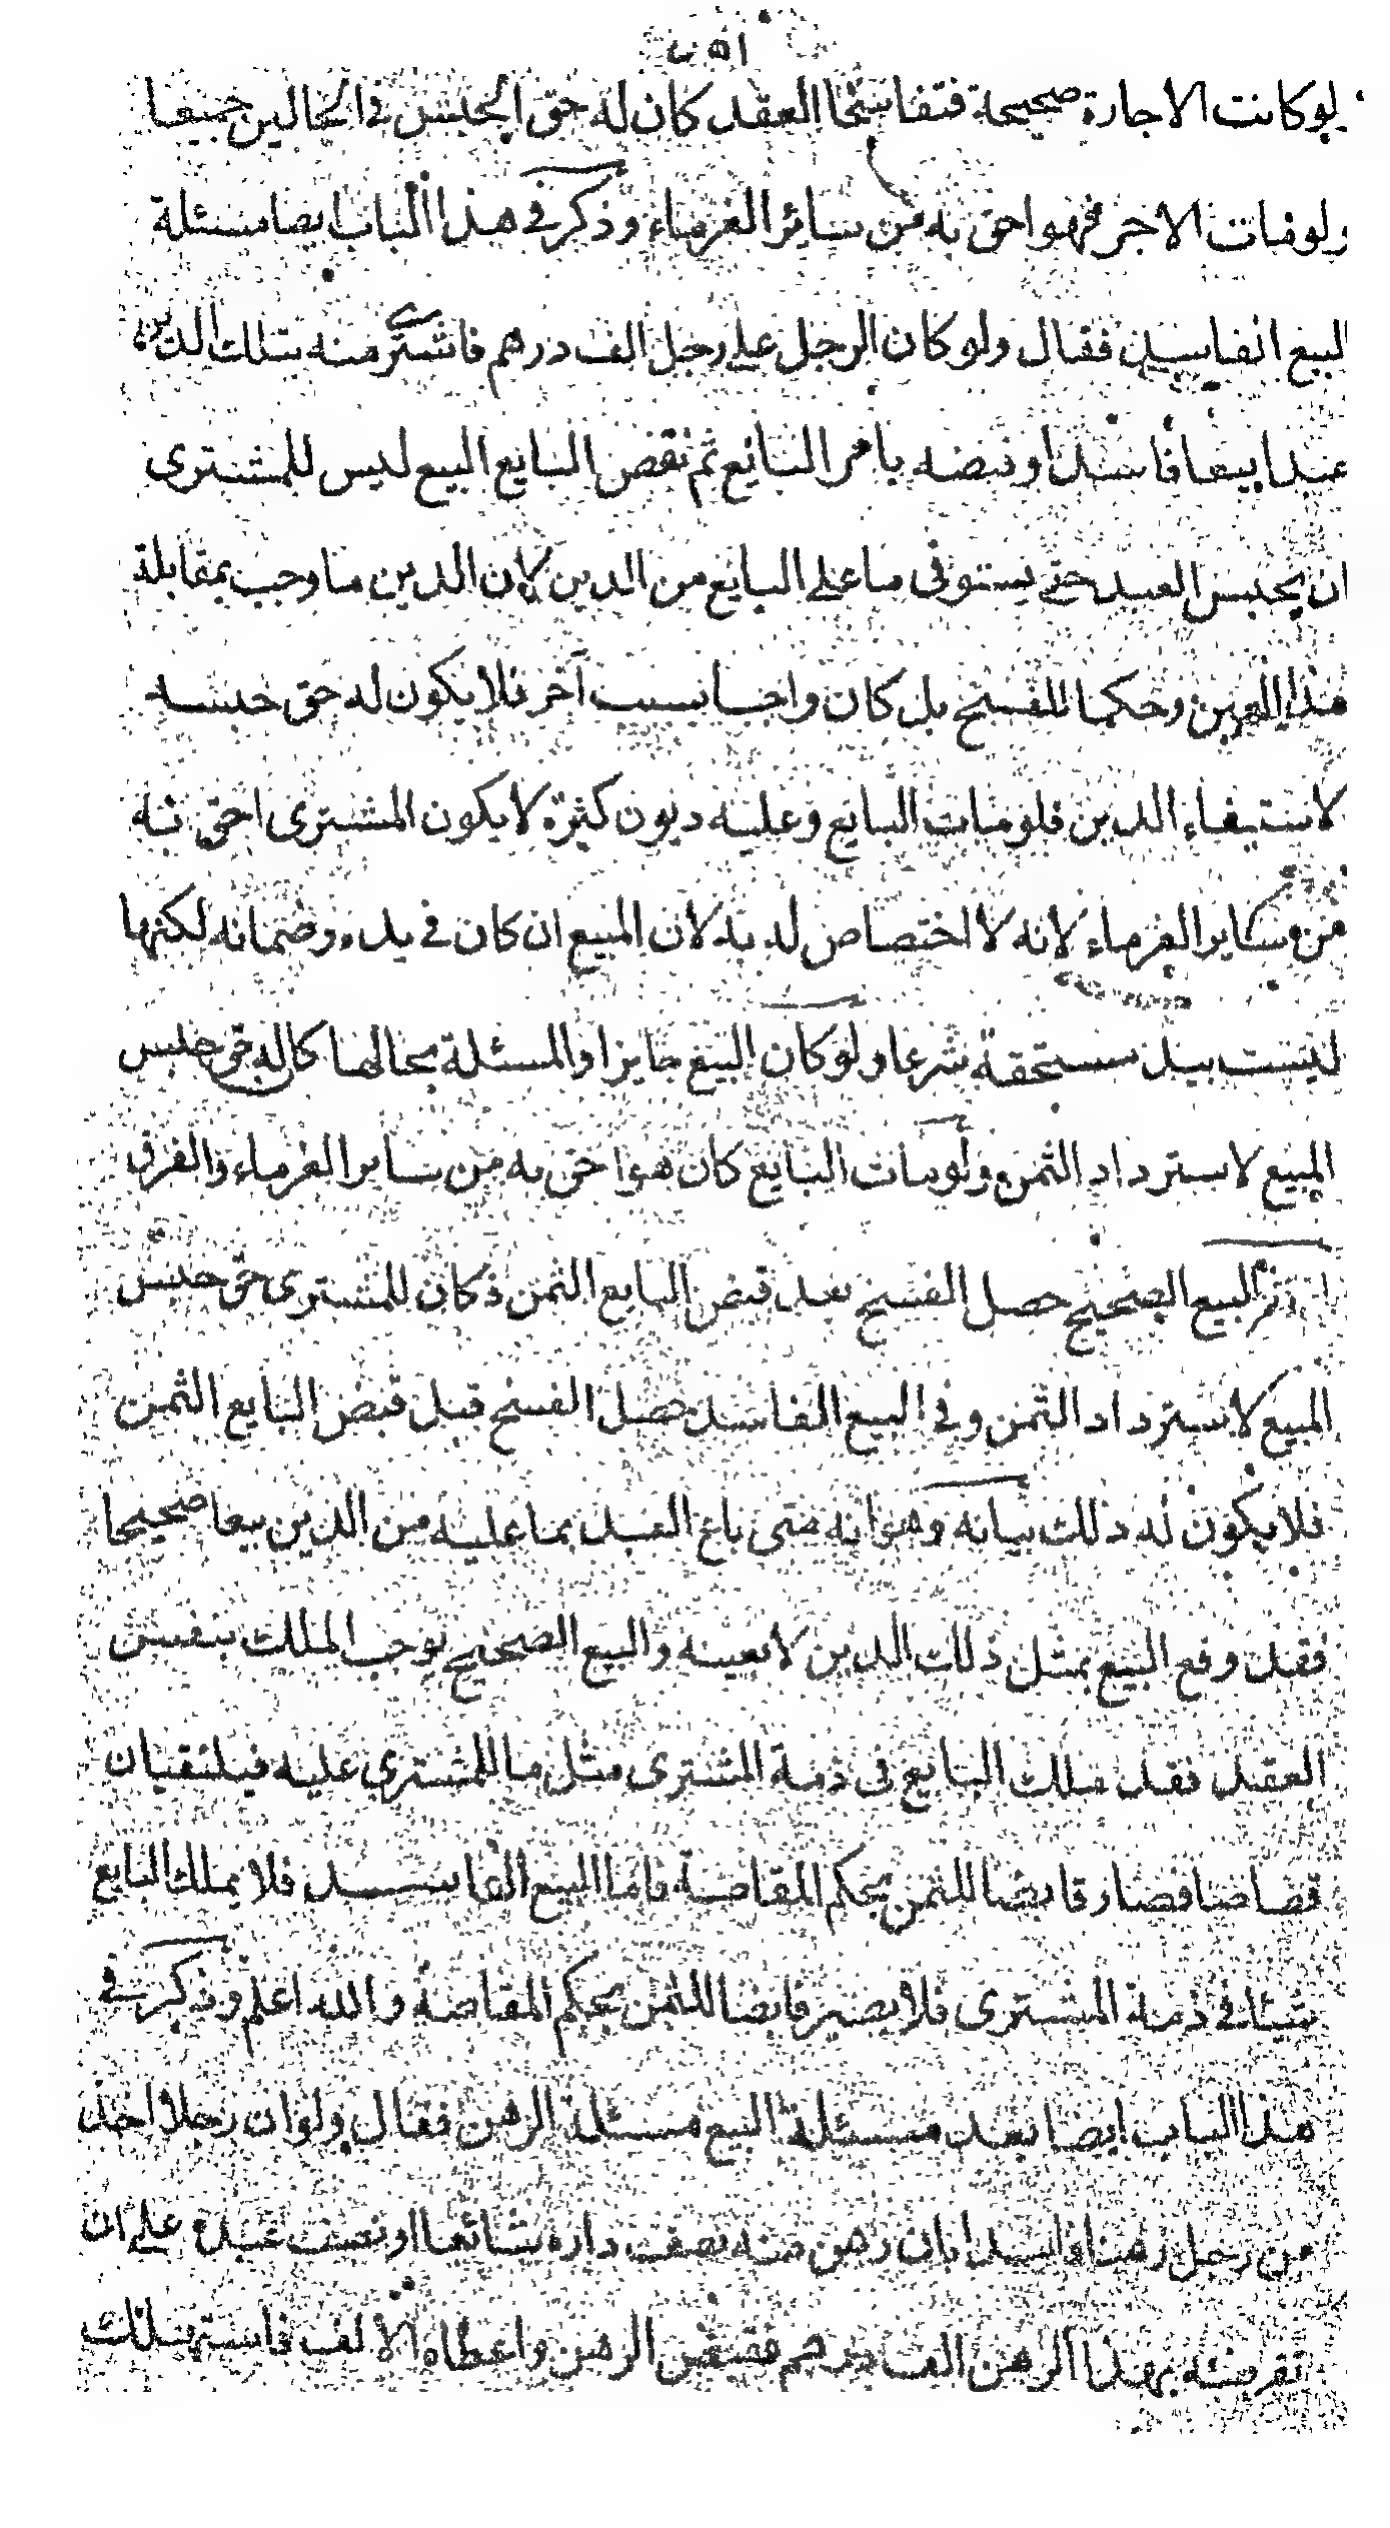 ٢٥١
لو كانت الاجارة صحيحة فتفاسخا العقد كان له حق الحبس فى الحالين جميعا
ولو مات الاجر فهو احق به من سائر الغرماء وذكر فى هذا الباب ايضا مسئلة
البيع الفاسد فقال ولو كان الرجل على رجل الف درهم فاشترى منه بتلك الدين
عبدا بيعا فاسدا وقبضه بامر البائع ثم نقض البايع البيع ليس للمشترى
ان يحبس العبد حتى يستوفى ما على البايع من الدين لان الدين ما وجب بمقابلة
هذا العين وحكما للفسخ بل كان واجبا بسبب آخر فلا يكون له حق حبسه
لاستيفاء الدين فلو مات البايع وعليه ديون كثيرة لا يكون المشترى احق به
من ساير الغرماء لانه لا اختصاص له به لان المبيع ان كان فى يده وضمانه لكنها
ليست بيد مستحقة شرعا ولو كان البيع جايزا والمسئلة بحالها كان له حق حبس
المبيع لاسترداد الثمن ولو مات البايع كان هو احق به من ساير الغرماء والفرق
ان فى البيع الصحيح حصل الفسخ بعد قبض البايع الثمن فكان للمشترى حق حبس
المبيع لاسترداد الثمن وفى البيع الفاسد حصل الفسخ قبل قبض البايع الثمن
فلا يكون له ذلك بيانه وهو انه متى باع العبد بما عليه من الدين بيعا صحيحا
فقد وقع البيع بمثل ذلك الدين لا بعينه والبيع الصحيح يوجب الملك بنفس
العقد فقد ملك البايع فى ذمة المشترى مثل ما للمشترى عليه فيلتقيان
قصاصا فصار قابضا للثمن بحكم المقاصة فاما البيع الفاسد فلا يملك البايع
شيئا فى ذمة المشترى فلا يصير قابضا للثمن بحكم المقاصة والله اعلم وذكر فى
هذا الباب ايضا بعد مسئلة البيع مسئلة الرهن فقال ولو ان رجلا اخذ
من رجل رهنا فاسدا بان رهن منه نصف داره شائعا او نصف عبده على ان
تقرضه بهذا الرهن الف درهم فقبض الرهن واعطاه الالف